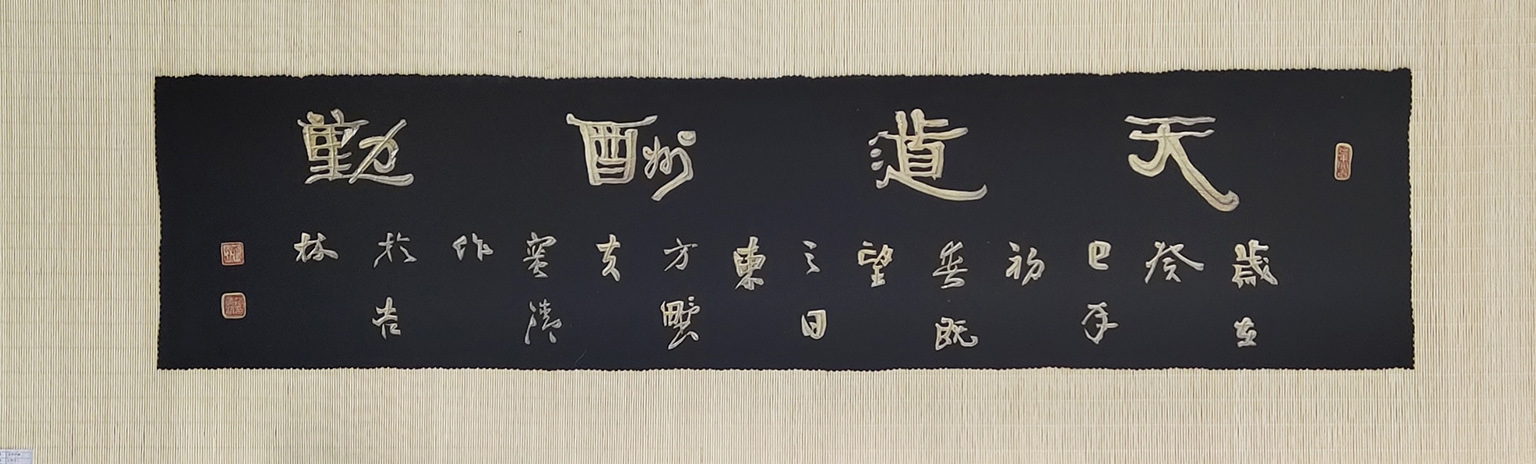 天道酬勤
歲在癸巳年初春既望之日東方作於吉林